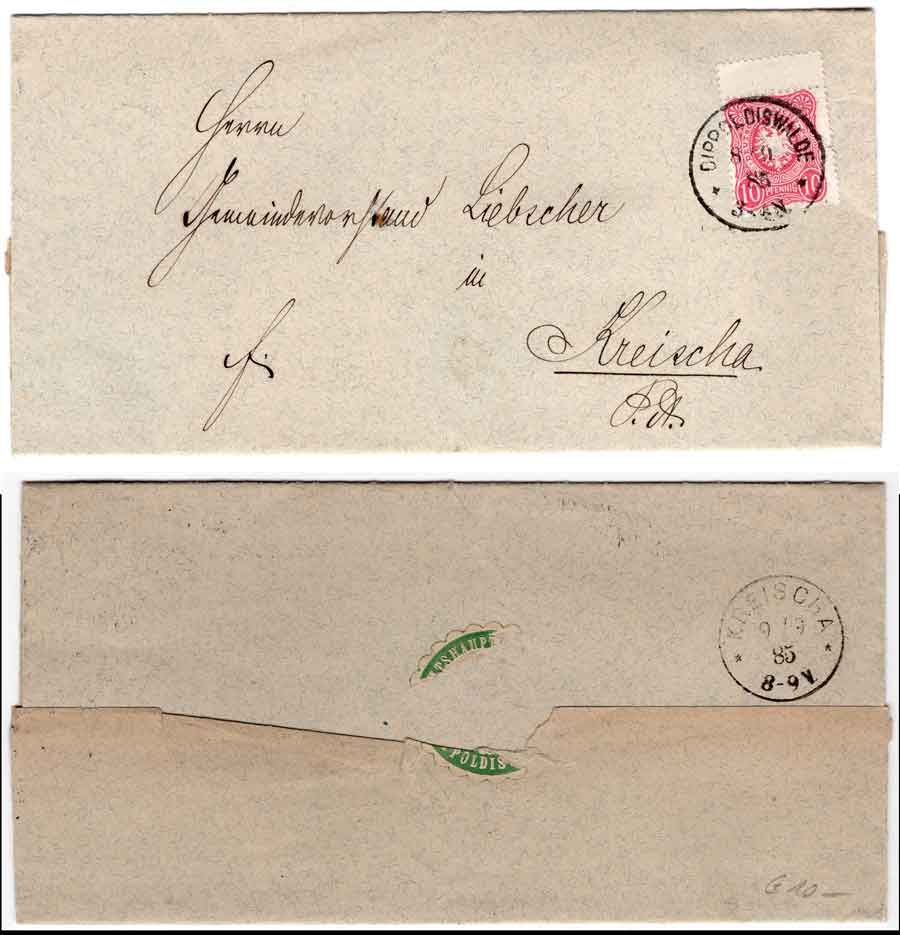 Herrn
Gemeindevorstand Liebscher
in
Kreischa
f.
DIPPOLDISWALDE
85
10 PFENNIG 10
KREISCHA
9 / 9
85
8-9 V.
TSHAUP
POLDIS